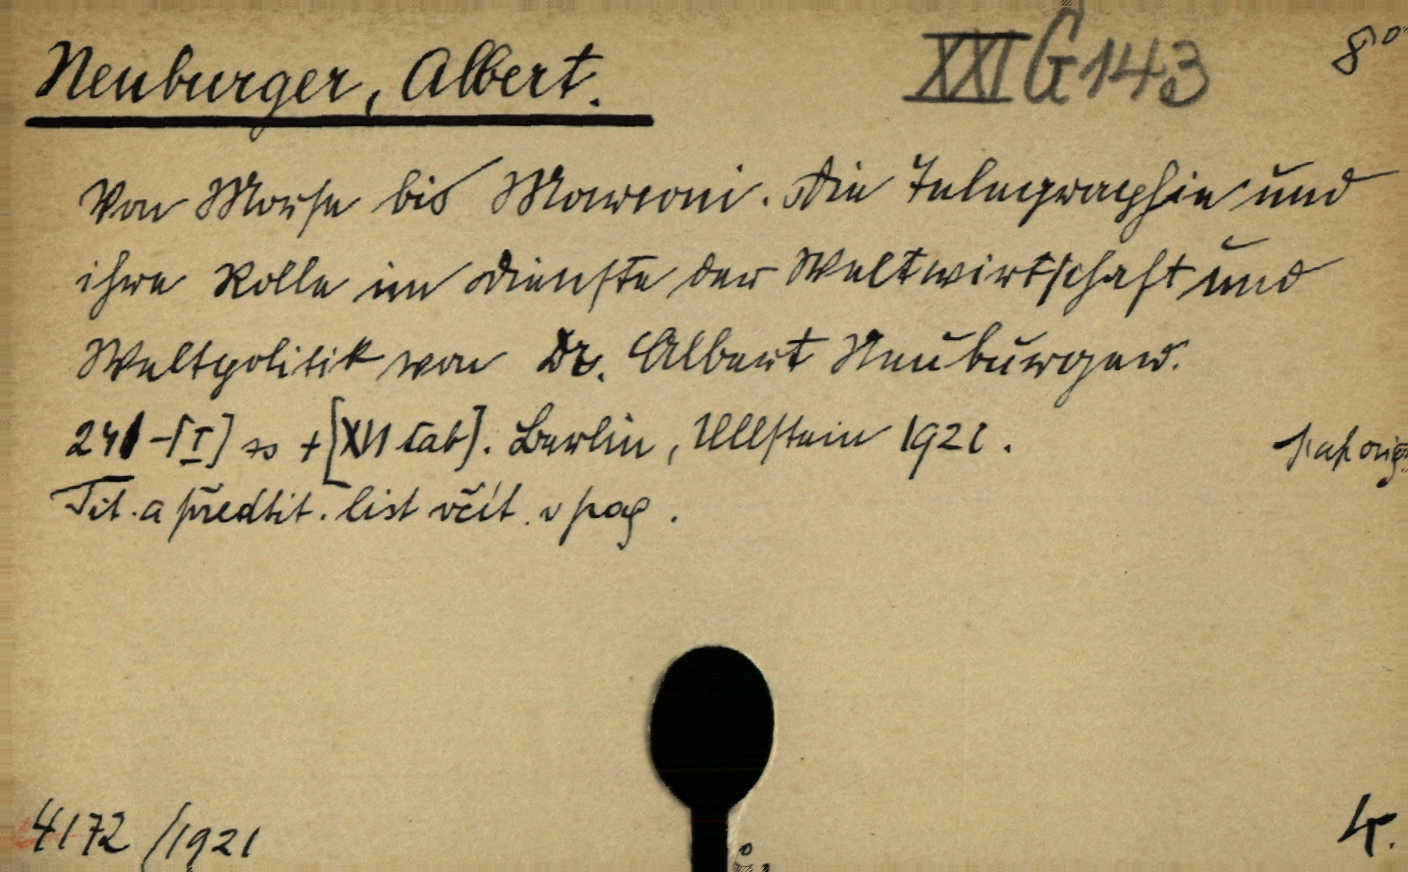 Neuburger, Albert. XXI G 143 8°
Von Morse bis Marconi. Die Telegraphie und
ihre Rolle im Dienste der Weltwirtschaft und
Weltpolitik von Dr. Albert Neuburger.
241 - [I] ss + [XVI tab]. Berlin, Ullstein 1921.
Tit. a předtit. list včít. v pag.
4172/1921